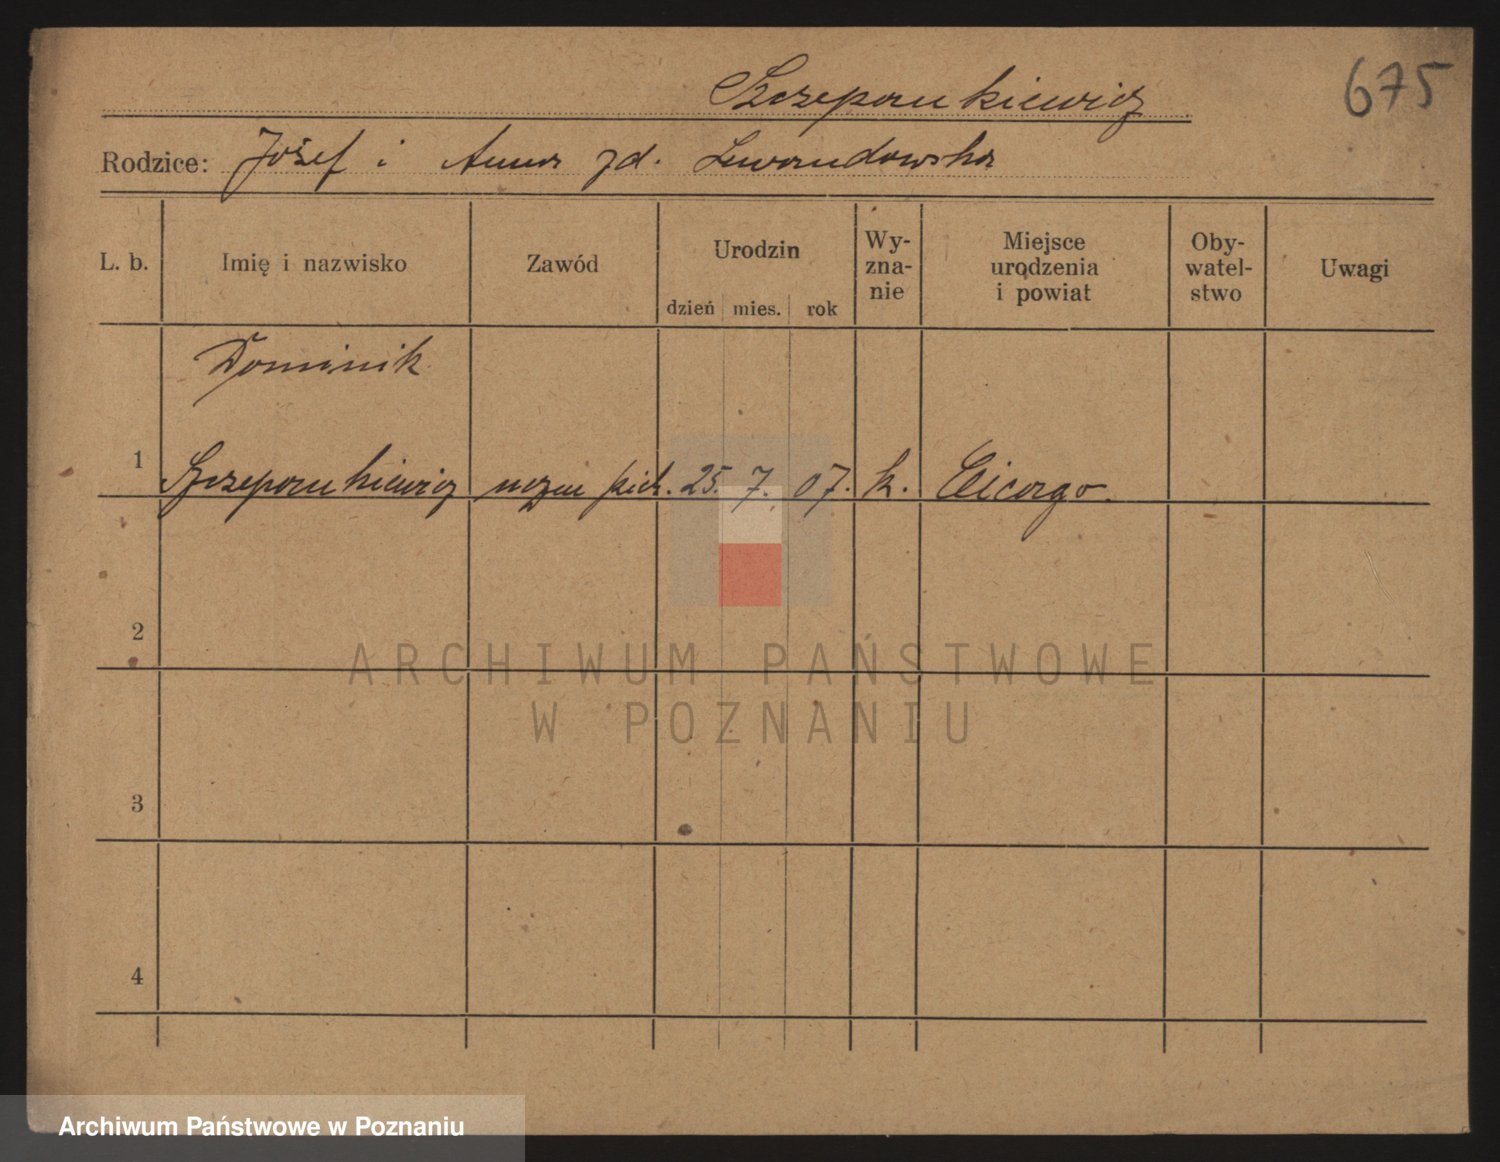 Szczepankiewicz
675
Rodzice: Józef i Anna zd. Lewandowska
L. b.
Imię i nazwisko
Zawód
Urodzin
dzień mies. rok
Wy-
zna-
nie
Miejsce
urodzenia
i powiat
Oby-
watel-
stwo
Uwagi
Dominik
1 Szczepankiewicz uczeń piek. 25. 7. 07. k. Cicago.
2
3
4
ARCHIWUM PAŃSTWOWE
W POZNANIU
Archiwum Państwowe w Poznaniu